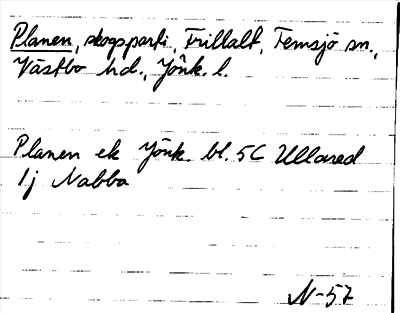 Planen, skogsparti, Frillalt, Femsjö sn.,
Västbo hd., Jönk. l.
Planen ek Jönk. bl. 5C Ullared
1j Nabba
N-57